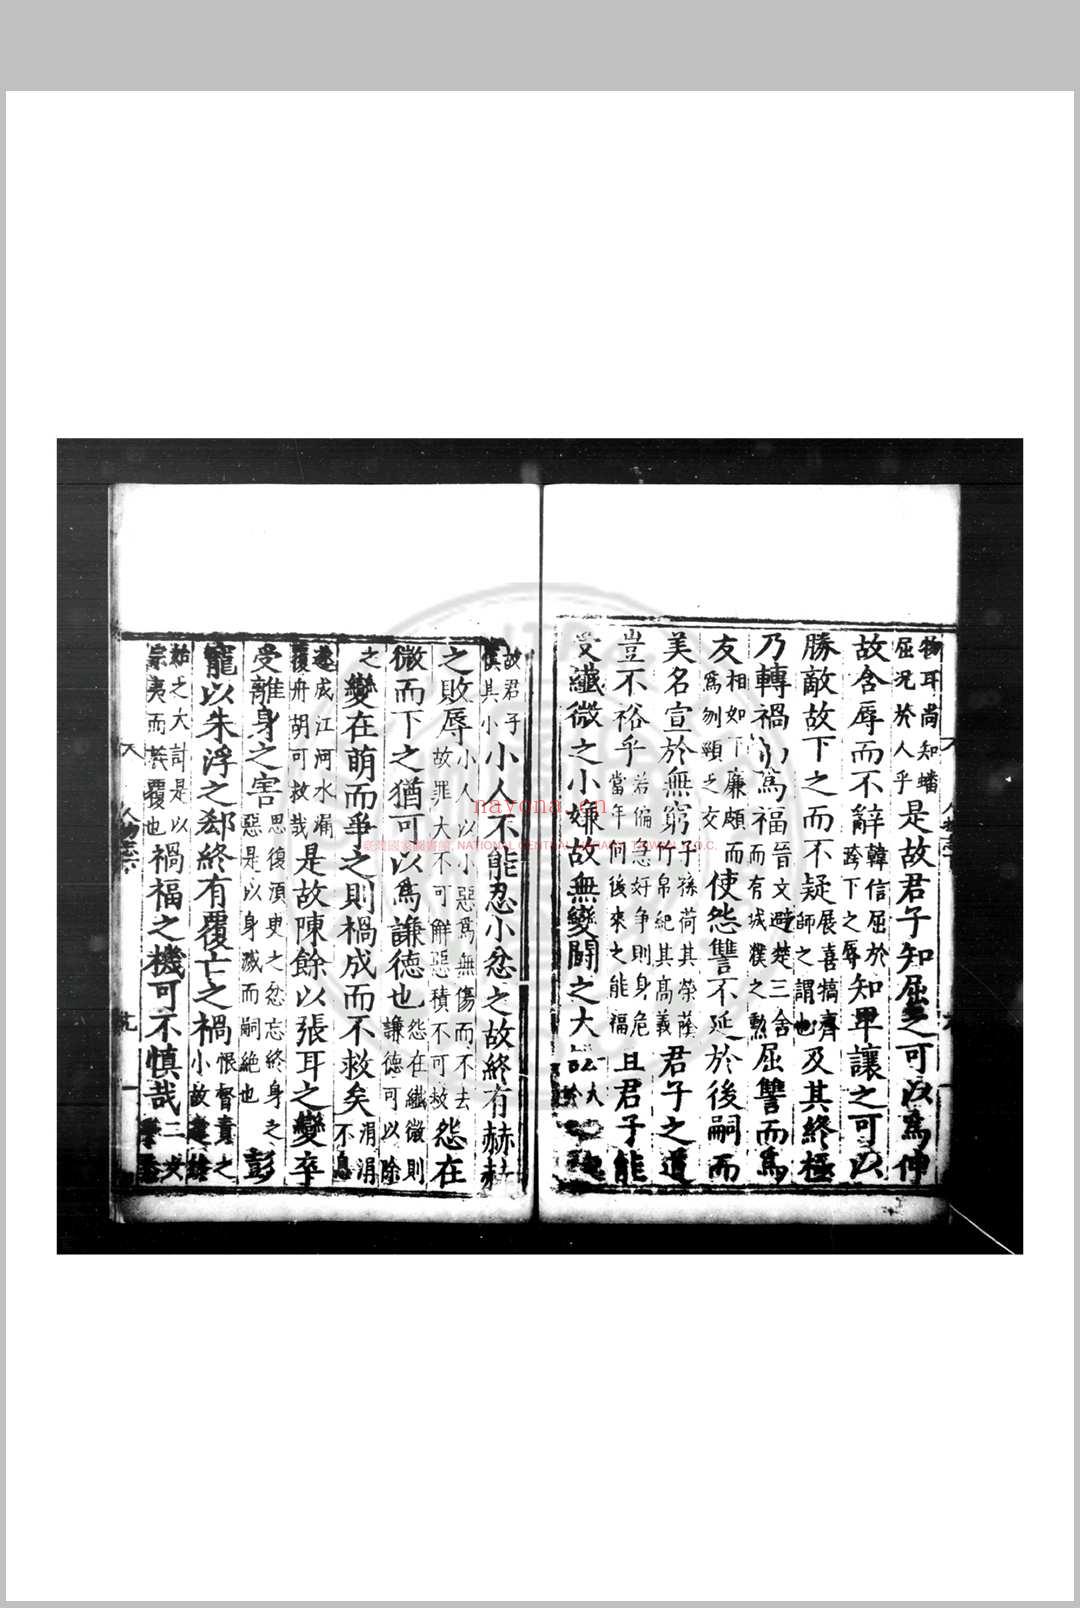 物耳尚知蟠
屈況於人乎是故君子知屈之可以爲伸
故含辱而不辭韓信屈於
跨下之辱知卑讓之可以
勝敵故下之而不疑展喜犒齊
師之謂也及其終極
乃轉禍爲福晉文避楚三舍
而有城濮之勲屈讐而爲
友相如下廉頗而
爲刎頸之交使怨讐不延於後嗣而
美名宣於無窮子孫荷其榮蔭
竹帛紀其高義君子之道
豈不裕乎若偏急好争則身危
當年何後來之能福且君子能
受纖微之小嫌故無變鬭之大
故君子
慎其小小人不能忍小忿之故終有赫赫
之敗辱小人以小惡爲無傷而不去
故罪大不可解惡積不可救怨在
微而下之猶可以爲謙德也怨在纖微則
謙德可以除
之變在萌而爭之則禍成而不救矣涓涓
不息
遂成江河水漏
覆舟胡可救哉是故陳餘以張耳之變卒
受離身之害思復須臾之忿忘終身之
惡是以身滅而嗣絶也彭
寵以朱浮之郄終有覆亡之禍恨督責之
小故
之大計是以
宗夷而族覆也禍福之機可不慎哉二女